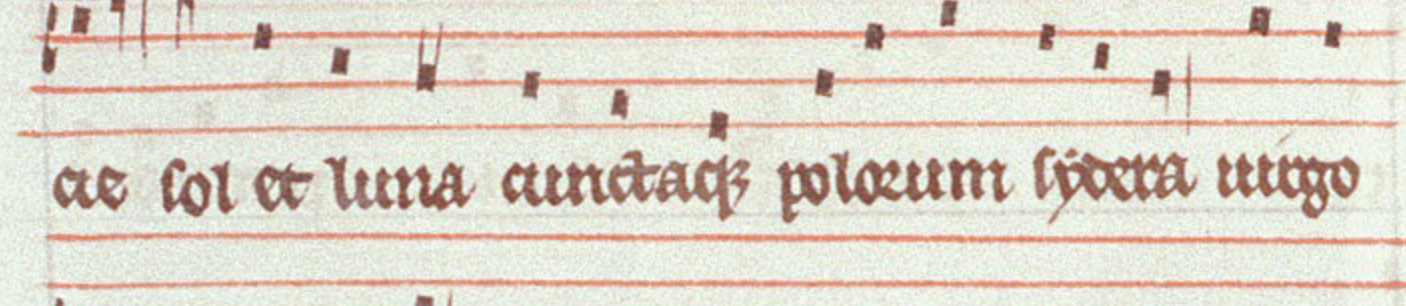 cie sol et luna cunctaqꝫ polorum sẏdera uirgo